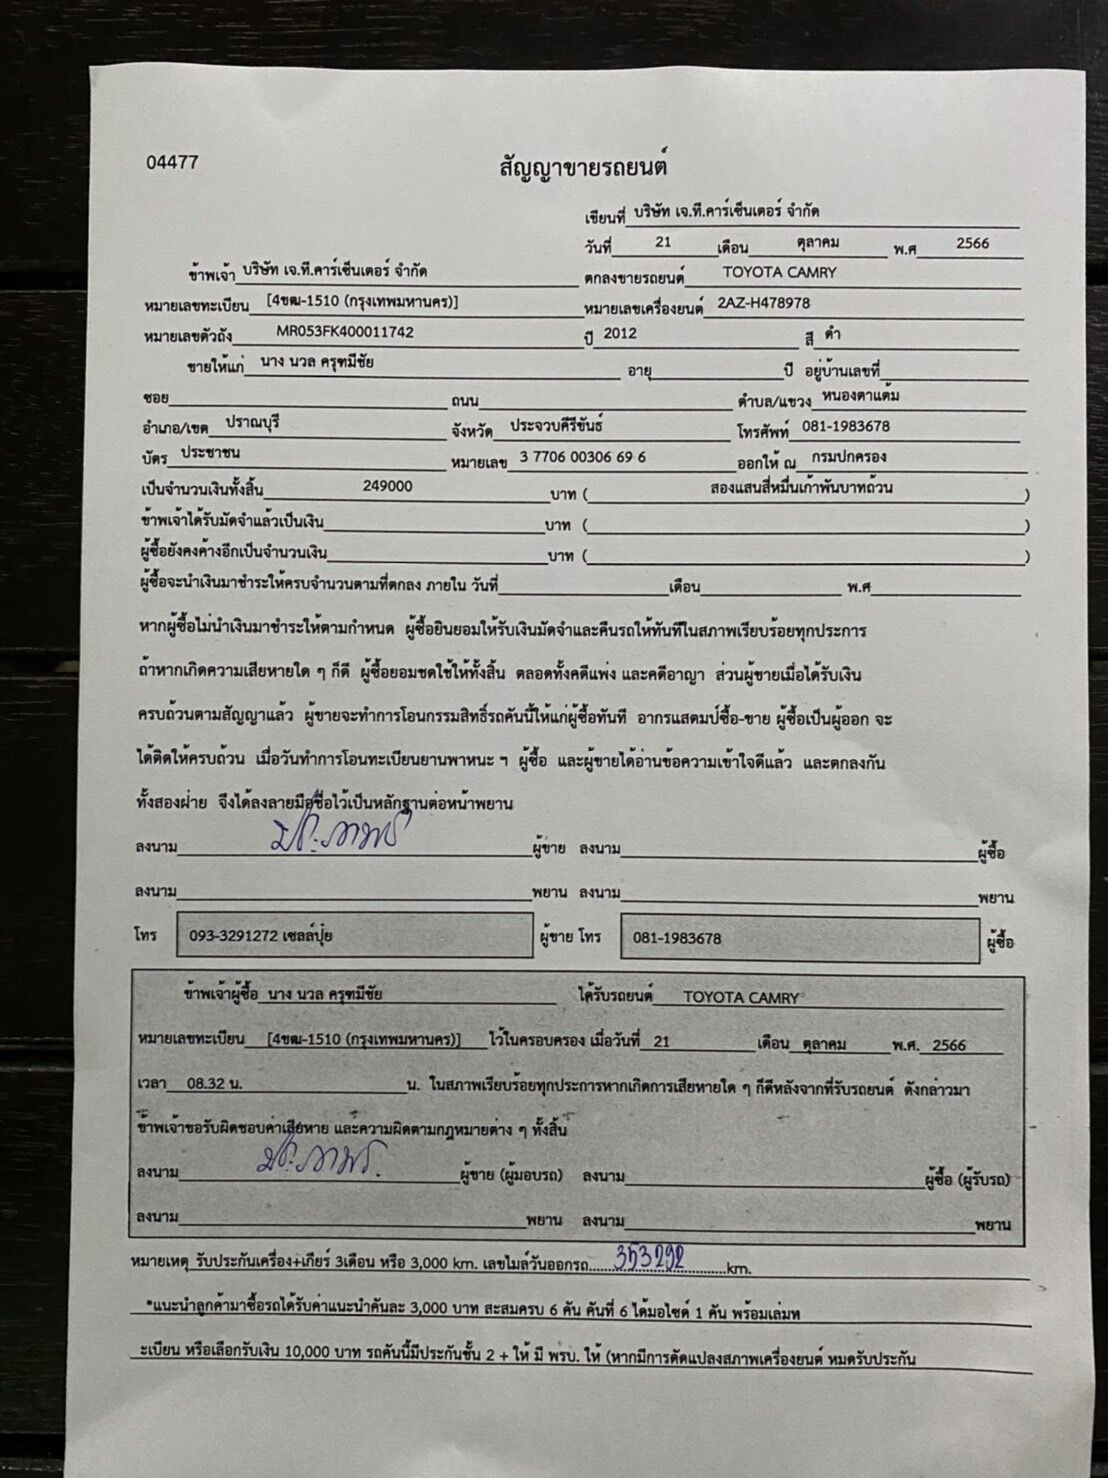 04477
สัญญาขายรถยนต์
เขียนที่ บริษัท เจ.ที.คาร์เซ็นเตอร์ จำกัด
วันที่ 21 เดือน ตุลาคม พ.ศ 2566
ข้าพเจ้า บริษัท เจ.ที.คาร์เซ็นเตอร์ จำกัด ตกลงขายรถยนต์ TOYOTA CAMRY
หมายเลขทะเบียน [4ขฒ-1510 (กรุงเทพมหานคร)] หมายเลขเครื่องยนต์ 2AZ-H478978
หมายเลขตัวถัง MR053FK400011742 ปี 2012 สี ดำ
ขายให้แก่ นาง นวล ครุฑมีชัย อายุ ปี อยู่บ้านเลขที่
ซอย ถนน ตำบล/แขวง หนองตาแต้ม
อำเภอ/เขต ปราณบุรี จังหวัด ประจวบคีรีขันธ์ โทรศัพท์ 081-1983678
บัตร ประชาชน หมายเลข 3 7706 00306 69 6 ออกให้ ณ กรมปกครอง
เป็นจำนวนเงินทั้งสิ้น 249000 บาท ( สองแสนสี่หมื่นเก้าพันบาทถ้วน )
ข้าพเจ้าได้รับมัดจำแล้วเป็นเงิน บาท ( )
ผู้ซื้อยังคงค้างอีกเป็นจำนวนเงิน บาท ( )
ผู้ซื้อจะนำเงินมาชำระให้ครบจำนวนตามที่ตกลง ภายใน วันที่ เดือน พ.ศ
หากผู้ซื้อไม่นำเงินมาชำระให้ตามกำหนด ผู้ซื้อยินยอมให้รับเงินมัดจำและคืนรถให้ทันทีในสภาพเรียบร้อยทุกประการ
ถ้าหากเกิดความเสียหายใด ๆ ก็ดี ผู้ซื้อยอมชดใช้ให้ทั้งสิ้น ตลอดทั้งคดีแพ่ง และคดีอาญา ส่วนผู้ขายเมื่อได้รับเงิน
ครบถ้วนตามสัญญาแล้ว ผู้ขายจะทำการโอนกรรมสิทธิ์รถคันนี้ให้แก่ผู้ซื้อทันที อากรแสตมป์ซื้อ-ขาย ผู้ซื้อเป็นผู้ออก จะ
ได้ติดให้ครบถ้วน เมื่อวันทำการโอนทะเบียนยานพาหนะ ฯ ผู้ซื้อ และผู้ขายได้อ่านข้อความเข้าใจดีแล้ว และตกลงกัน
ทั้งสองฝ่าย จึงได้ลงลายมือชื่อไว้เป็นหลักฐานต่อหน้าพยาน
ลงนาม ผู้ขาย ลงนาม ผู้ซื้อ
ลงนาม พยาน ลงนาม พยาน
โทร 093-3291272 เซลล์ปุ๋ย ผู้ขาย โทร 081-1983678 ผู้ซื้อ
ข้าพเจ้าผู้ซื้อ นาง นวล ครุฑมีชัย ได้รับรถยนต์ TOYOTA CAMRY
หมายเลขทะเบียน [4ขฒ-1510 (กรุงเทพมหานคร)] ไว้ในครอบครอง เมื่อวันที่ 21 เดือน ตุลาคม พ.ศ. 2566
เวลา 08.32 น. น. ในสภาพเรียบร้อยทุกประการหากเกิดการเสียหายใด ๆ ก็ดีหลังจากที่รับรถยนต์ ดังกล่าวมา
ข้าพเจ้าขอรับผิดชอบค่าเสียหาย และความผิดตามกฎหมายต่าง ๆ ทั้งสิ้น
ลงนาม ผู้ขาย (ผู้มอบรถ) ลงนาม ผู้ซื้อ (ผู้รับรถ)
ลงนาม พยาน ลงนาม พยาน
หมายเหตุ รับประกันเครื่อง+เกียร์ 3เดือน หรือ 3,000 km. เลขไมล์วันออกรถ......353292......km.
*แนะนำลูกค้ามาซื้อรถได้รับค่าแนะนำคันละ 3,000 บาท สะสมครบ 6 คัน คันที่ 6 ได้มอไซด์ 1 คัน พร้อมเล่มท
ะเบียน หรือเลือกรับเงิน 10,000 บาท รถคันนี้มีประกันชั้น 2 + ให้ มี พรบ. ให้ (หากมีการดัดแปลงสภาพเครื่องยนต์ หมดรับประกัน